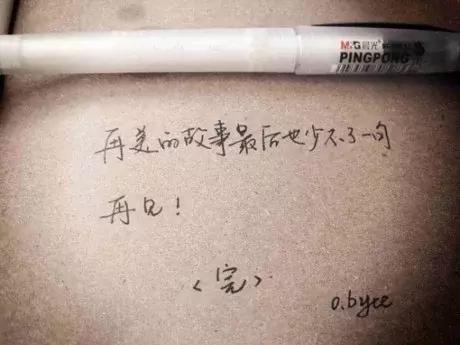 M&G晨光
PINGPONG
再美的故事最后也少不了一句
再见！
<完>
o.byee